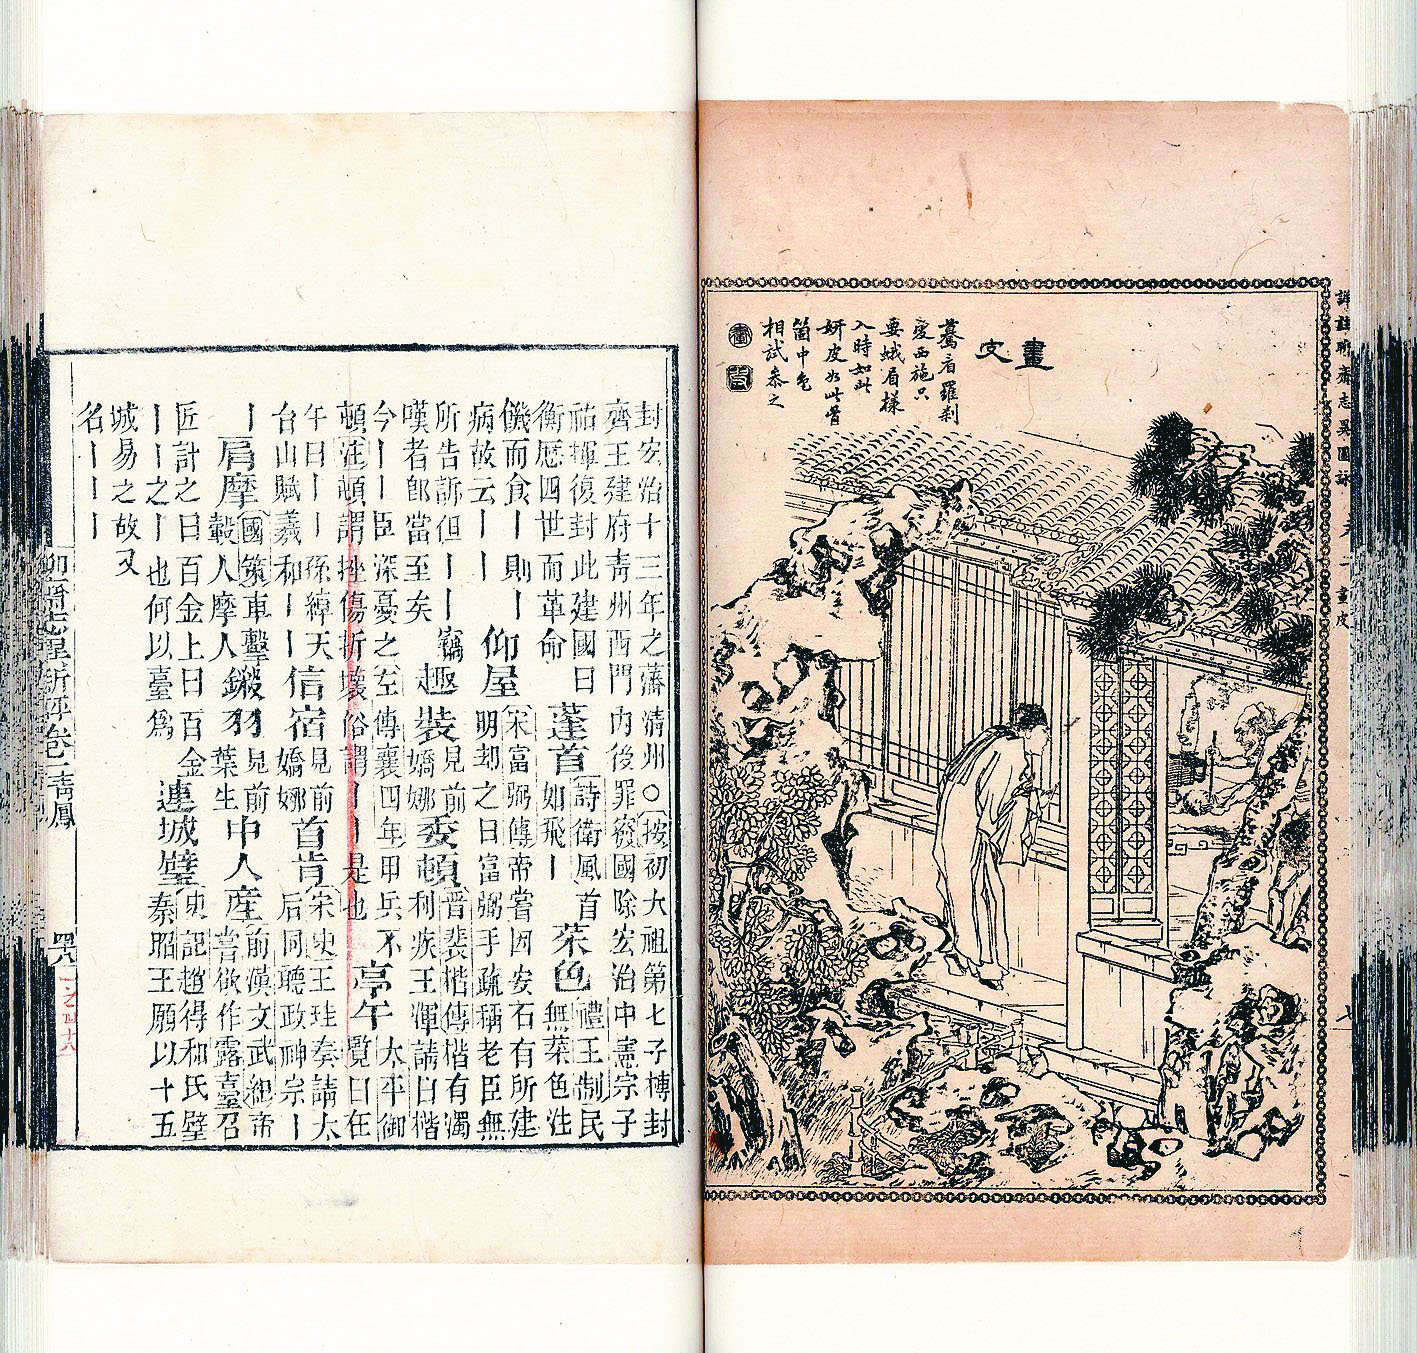 詳註聊齋志異圖詠 卷一 畫皮 七
畫皮
驀看羅刹
變西施只
要蛾眉樣
入時如此
妍皮如此骨
箇中色
相試參之
封安治十三年之藩清州○按初大祖第七子榑封
齊王建府青州西門內後罪廢國除宏治中憲宗子
祐揮復封此建國曰
衡歷四世而革命
蓬首
詩衛風首
如飛｜
菜色
禮王制民
無菜色注
饑而食｜則｜
病故云｜｜
仰屋
宋富弼傳帝嘗因安石有所建
明却之曰富弼手疏稱老臣無
所告訴但｜｜｜竊
嘆者卽當至矣
趣裝
見前
嬌娜
委頓
晉裴楷傳楷有濁
利疾王渾請曰楷
今｜｜臣深憂之左傳襄四年甲兵不
頓注頓謂挫傷折壞俗謂｜｜是也
亭午
太平御
覽曰在
午曰｜｜孫綽天
台山賦羲和｜｜
信宿
見前
嬌娜
首肯
宋史王珪奏請太
后同聽政神宗｜
｜
肩摩
國策車轚
轂人摩人
鎩羽
見前
葉生
中人產
前漢文武紀帝
嘗欲作露臺召
匠計之曰百金上曰百金
｜｜之｜也何以臺爲
連城璧
史記趙得和氏璧
秦昭王願以十五
城易之故又
名｜｜｜
聊齋志異新評卷一 青鳳 四八